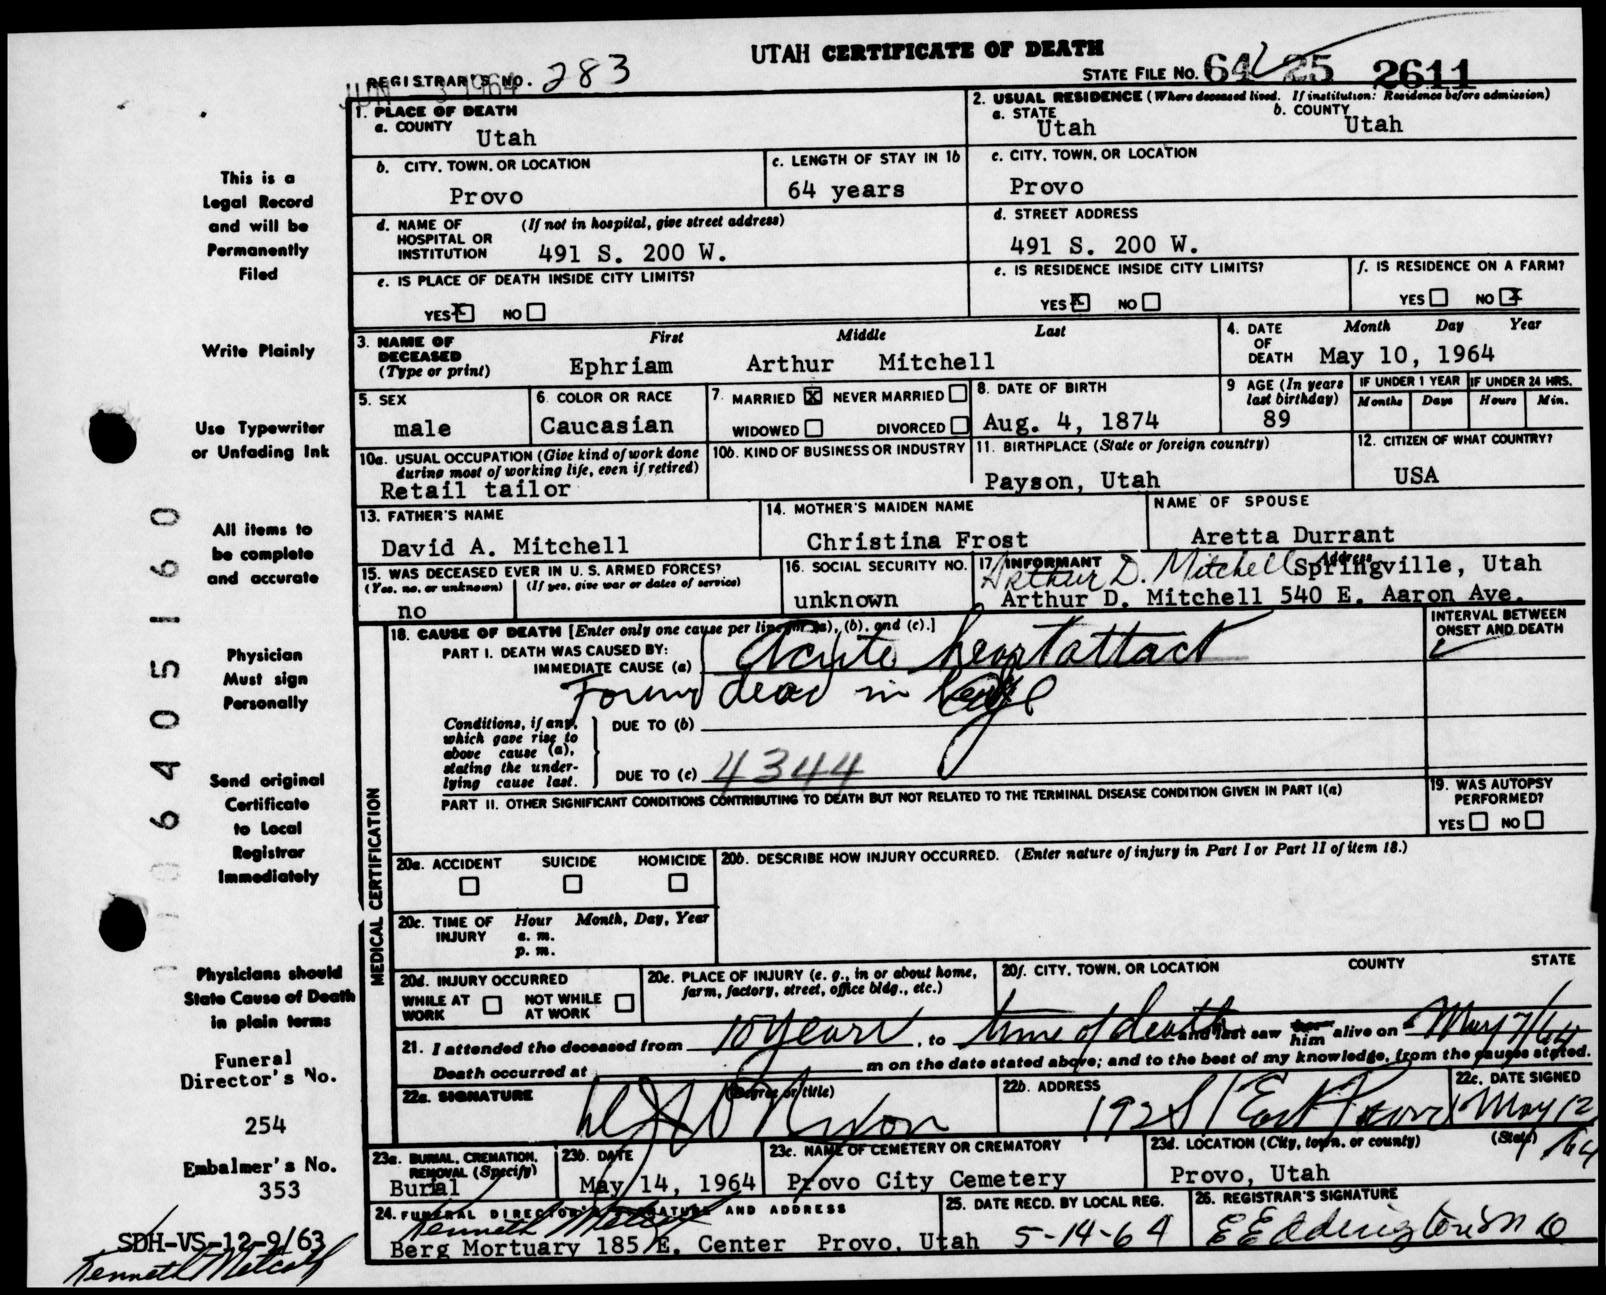 UTAH CERTIFICATE OF DEATH
REGISTRAR'S NO. 283
JUN 3 1964
STATE FILE NO. 64 25 2611
1. PLACE OF DEATH
a. COUNTY
Utah
2. USUAL RESIDENCE (Where deceased lived. If institution: Residence before admission)
a. STATE
Utah
b. COUNTY
Utah
b. CITY, TOWN, OR LOCATION
Provo
c. LENGTH OF STAY IN 1b
64 years
c. CITY, TOWN, OR LOCATION
Provo
d. NAME OF HOSPITAL OR INSTITUTION (If not in hospital, give street address)
491 S. 200 W.
d. STREET ADDRESS
491 S. 200 W.
e. IS PLACE OF DEATH INSIDE CITY LIMITS?
YES X NO
e. IS RESIDENCE INSIDE CITY LIMITS?
YES X NO
f. IS RESIDENCE ON A FARM?
YES NO X
3. NAME OF DECEASED (Type or print)
First Middle Last
Ephriam Arthur Mitchell
4. DATE OF DEATH Month Day Year
May 10, 1964
5. SEX
male
6. COLOR OR RACE
Caucasian
7. MARRIED X NEVER MARRIED
WIDOWED DIVORCED
8. DATE OF BIRTH
Aug. 4, 1874
9 AGE (In years last birthday)
89
IF UNDER 1 YEAR
Months Days
IF UNDER 24 HRS.
Hours Min.
10a. USUAL OCCUPATION (Give kind of work done during most of working life, even if retired)
Retail tailor
10b. KIND OF BUSINESS OR INDUSTRY
11. BIRTHPLACE (State or foreign country)
Payson, Utah
12. CITIZEN OF WHAT COUNTRY?
USA
13. FATHER'S NAME
David A. Mitchell
14. MOTHER'S MAIDEN NAME
Christina Frost
NAME OF SPOUSE
Aretta Durrant
15. WAS DECEASED EVER IN U. S. ARMED FORCES?
(Yes, no, or unknown) (If yes, give war or dates of service)
no
16. SOCIAL SECURITY NO.
unknown
17. INFORMANT Address
Arthur D. Mitchell Springville, Utah
Arthur D. Mitchell 540 E. Aaron Ave.
MEDICAL CERTIFICATION
18. CAUSE OF DEATH [Enter only one cause per line for (a), (b), and (c).]
INTERVAL BETWEEN ONSET AND DEATH
PART I. DEATH WAS CAUSED BY:
IMMEDIATE CAUSE (a) Acute heart attack
Found dead in
Conditions, if any, which gave rise to above cause (a), stating the underlying cause last.
DUE TO (b)
DUE TO (c) 4344
PART II. OTHER SIGNIFICANT CONDITIONS CONTRIBUTING TO DEATH BUT NOT RELATED TO THE TERMINAL DISEASE CONDITION GIVEN IN PART I(a)
19. WAS AUTOPSY PERFORMED?
YES NO
20a. ACCIDENT SUICIDE HOMICIDE
20b. DESCRIBE HOW INJURY OCCURRED. (Enter nature of injury in Part I or Part II of item 18.)
20c. TIME OF INJURY Hour Month, Day, Year
a. m.
p. m.
20d. INJURY OCCURRED
WHILE AT WORK NOT WHILE AT WORK
20e. PLACE OF INJURY (e. g., in or about home, farm, factory, street, office bldg., etc.)
20f. CITY, TOWN, OR LOCATION COUNTY STATE
21. I attended the deceased from 10 years, to time of death and last saw him alive on May 7/64
Death occurred at m on the date stated above; and to the best of my knowledge, from the causes stated.
22a. SIGNATURE (Degree or title)
Nixon
22b. ADDRESS
192 S 1 East Provo
22c. DATE SIGNED
May 12/64
23a. BURIAL, CREMATION, REMOVAL (Specify)
Burial
23b. DATE
May 14, 1964
23c. NAME OF CEMETERY OR CREMATORY
Provo City Cemetery
23d. LOCATION (City, town, or county) (State)
Provo, Utah
24. FUNERAL DIRECTOR'S SIGNATURE AND ADDRESS
Kenneth Metcalf
Berg Mortuary 185 E. Center Provo, Utah
25. DATE RECD. BY LOCAL REG.
5-14-64
26. REGISTRAR'S SIGNATURE
E E Eddington
This is a
Legal Record
and will be
Permanently
Filed
Write Plainly
Use Typewriter
or Unfading Ink
All items to
be complete
and accurate
Physician
Must sign
Personally
Send original
Certificate
to Local
Registrar
Immediately
Physicians should
State Cause of Death
in plain terms
Funeral
Director's No.
254
Embalmer's No.
353
SDH-VS-12-9/63
Kenneth Metcalf
06405160